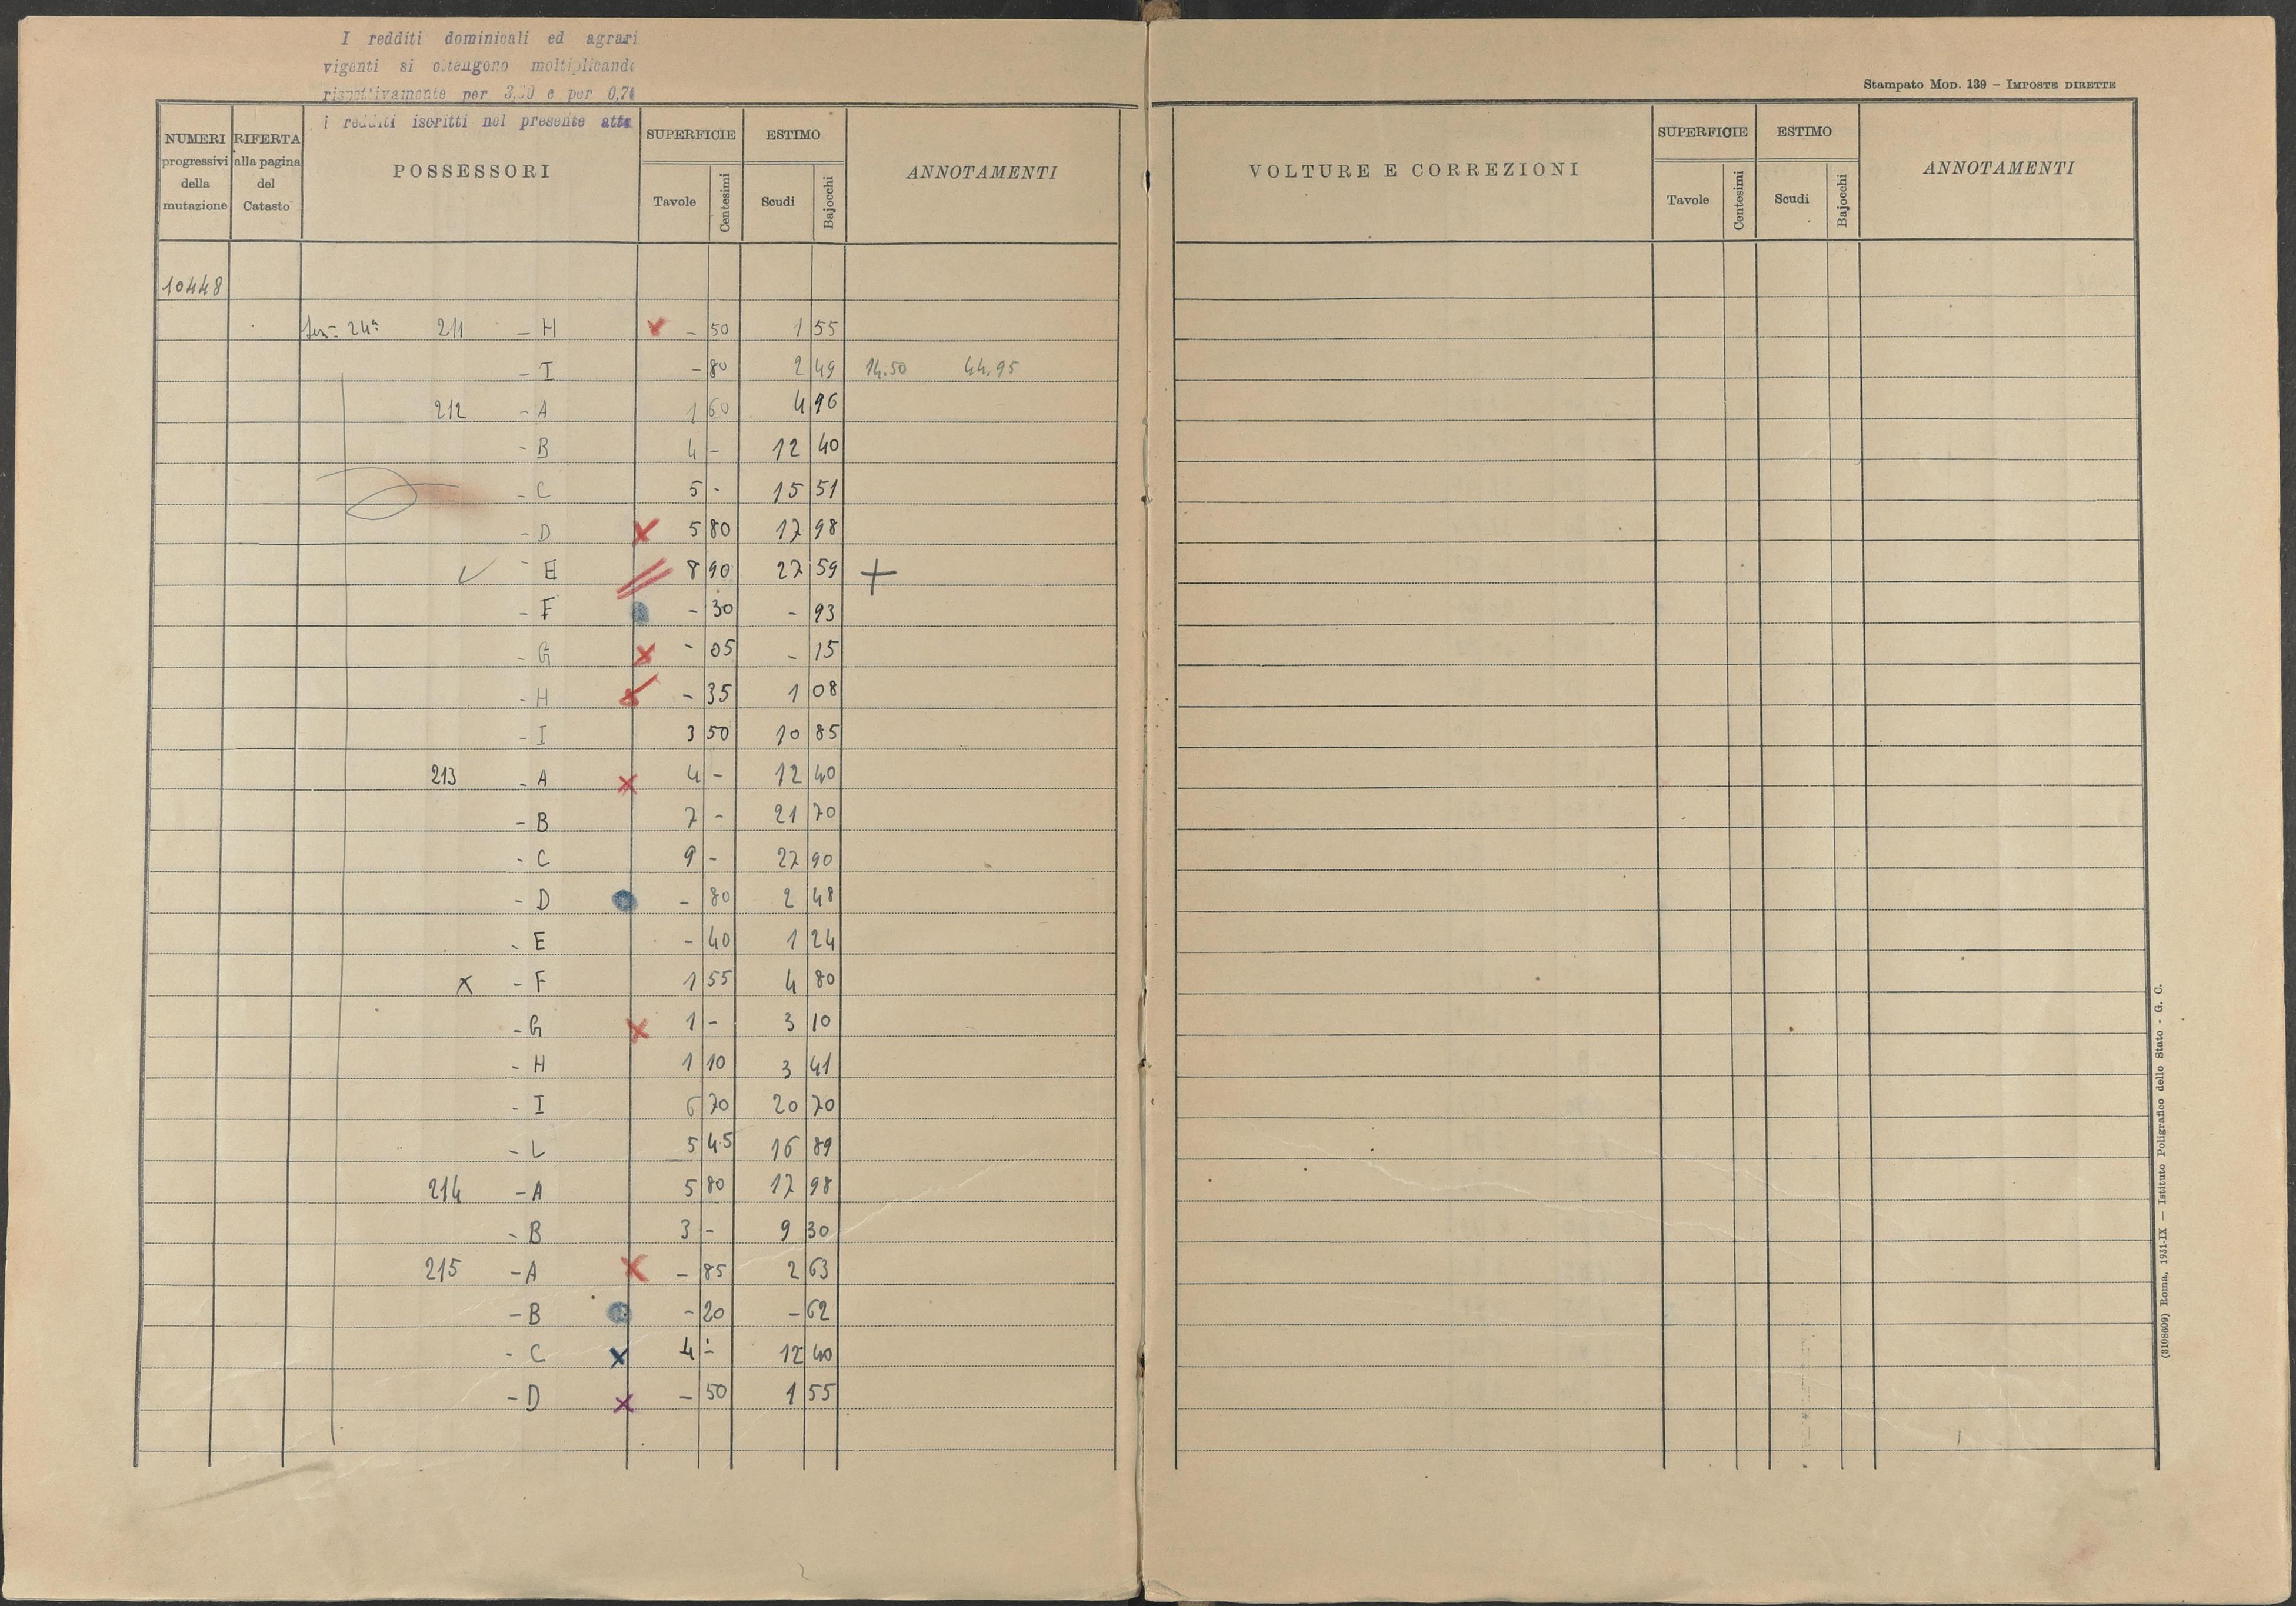 I redditi dominicali ed agrari
vigenti si ottengono moltiplicando
rispettivamente per 3,30 e per 0,70
i redditi iscritti nel presente atto
Stampato MOD. 139 – IMPOSTE DIRETTE
NUMERI progressivi della mutazione | RIFERTA alla pagina del Catasto | POSSESSORI | SUPERFICIE Tavole Centesimi | ESTIMO Scudi Bajocchi | ANNOTAMENTI
VOLTURE E CORREZIONI | SUPERFICIE Tavole Centesimi | ESTIMO Scudi Bajocchi | ANNOTAMENTI
10448
24ª 211 - H - 50 1 55
- I - 80 2 49 14.50 44.95
212 - A 1 60 4 96
- B 4 - 12 40
- C 5 - 15 51
- D 5 80 17 98
- E 8 90 27 59 +
- F - 30 - 93
- G - 05 - 15
- H - 35 1 08
- I 3 50 10 85
213 - A 4 - 12 40
- B 7 - 21 70
- C 9 - 27 90
- D - 80 2 48
- E - 40 1 24
x - F 1 55 4 80
- G 1 - 3 10
- H 1 10 3 41
- I 6 70 20 70
- L 5 45 16 89
214 - A 5 80 17 98
- B 3 - 9 30
215 - A - 85 2 63
- B - 20 - 62
- C 4 - 12 40
- D - 50 1 55
(3108609) Roma, 1931-IX — Istituto Poligrafico dello Stato - G. C.